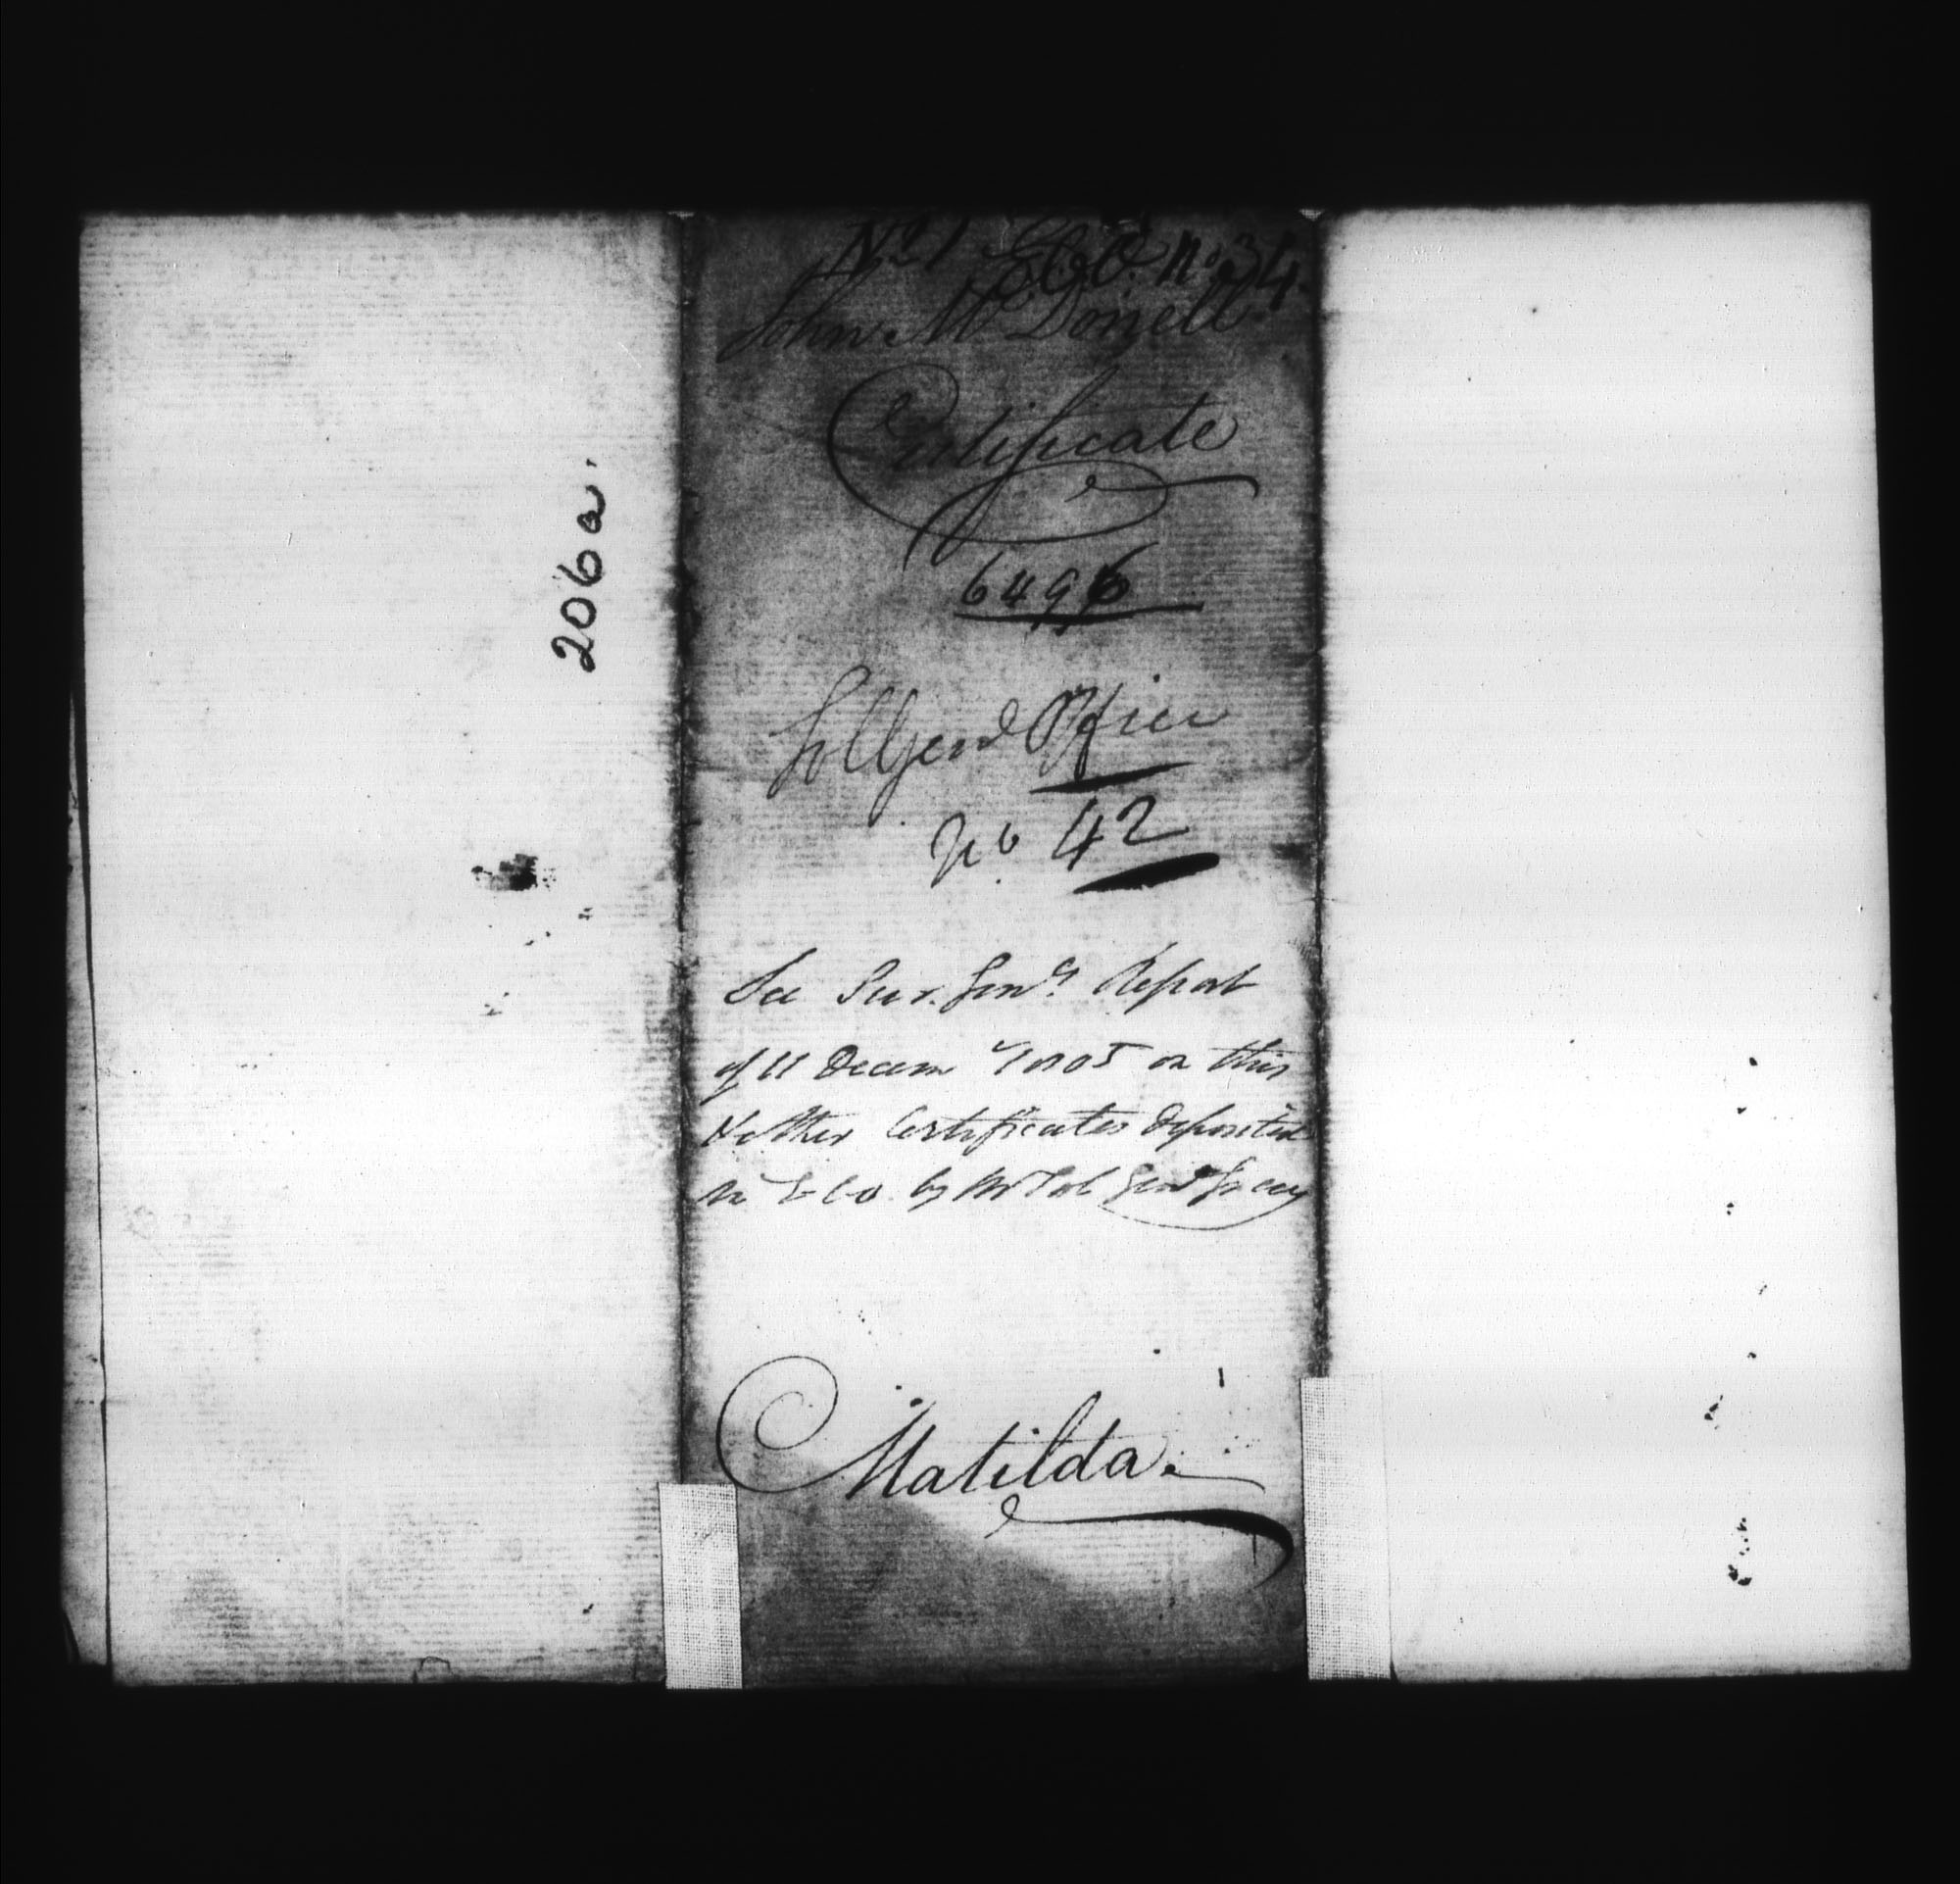 206a.
No. 1 E.C.O. No. 34.
John McDonell
Certificate
6496
Sol Genl Office
No 42
See Sur. Genl. Report
of 11 Decemr 1805 on this
& other Certificates deposited
in E C O. by Mr Sol Genl Gray
Matilda.